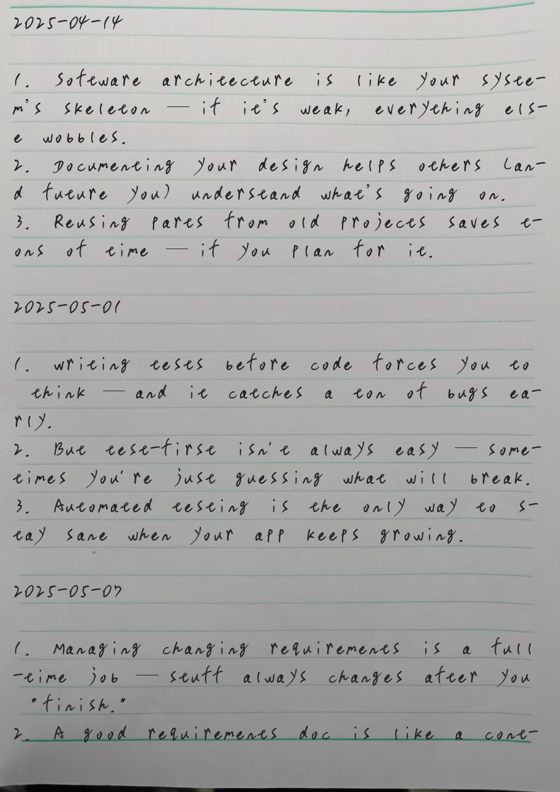 2025-04-14
1. Software architecture is like your syste-
m's skeleton — if it's weak, everything els-
e wobbles.
2. Documenting your design helps others (an-
d future you) understand what's going on.
3. Reusing parts from old projects saves t-
ons of time — if you plan for it.
2025-05-01
1. Writing tests before code forces you to
think — and it catches a ton of bugs ea-
rly.
2. But test-first isn't always easy — some-
times you're just guessing what will break.
3. Automated testing is the only way to s-
tay sane when your app keeps growing.
2025-05-07
1. Managing changing requirements is a full
-time job — stuff always changes after you
"finish."
2. A good requirements doc is like a cont-